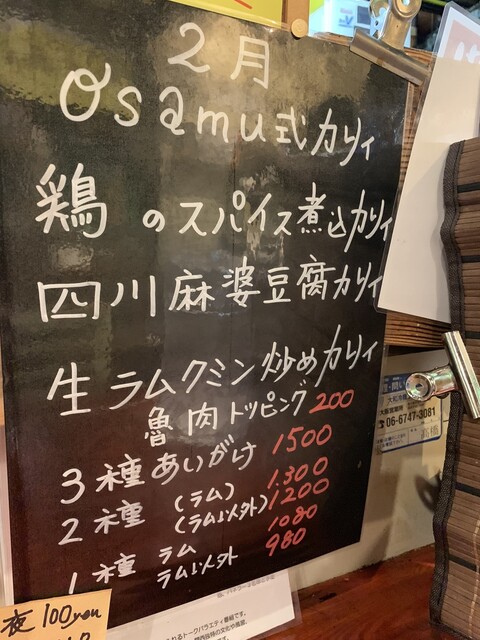 2月
Osamu式カリィ
鶏のスパイス煮込カリィ
四川麻婆豆腐カリィ
生ラムクミン炒めカリィ
魯肉トッピング200
3種あいがけ 1500
2種 (ラム) 1.300
(ラム以外) 1200
1種 ラム 1080
ラム以外 980
夜100yen
06-6747-3081
高橋
れるトークバラエティ番組です。